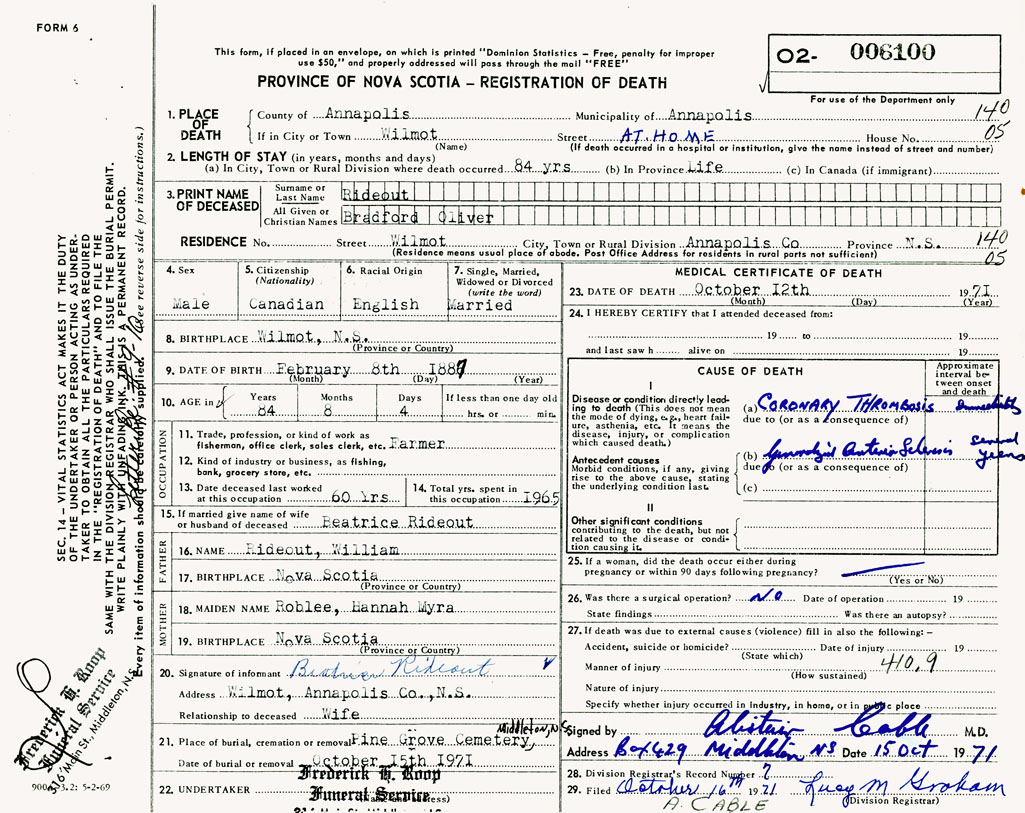 FORM 6
This form, if placed in an envelope, on which is printed "Dominion Statistics – Free, penalty for improper
use $50," and properly addressed will pass through the mail "FREE"
PROVINCE OF NOVA SCOTIA – REGISTRATION OF DEATH
02- 006100
For use of the Department only
1. PLACE OF DEATH
County of Annapolis Municipality of Annapolis 140
If in City or Town Wilmot Street AT HOME House No. 05
(Name) (If death occurred in a hospital or institution, give the name instead of street and number)
2. LENGTH OF STAY (in years, months and days)
(a) In City, Town or Rural Division where death occurred 84 yrs (b) In Province Life (c) In Canada (if immigrant)
3. PRINT NAME OF DECEASED
Surname or Last Name Rideout
All Given or Christian Names Bradford Oliver
RESIDENCE No. Street Wilmot City, Town or Rural Division Annapolis Co Province N.S. 140
(Residence means usual place of abode. Post Office Address for residents in rural parts not sufficient) 05
4. Sex
Male
5. Citizenship
(Nationality)
Canadian
6. Racial Origin
English
7. Single, Married,
Widowed or Divorced
(write the word)
Married
8. BIRTHPLACE Wilmot, N.S.
(Province or Country)
9. DATE OF BIRTH February 8th 1887
(Month) (Day) (Year)
10. AGE in
Years Months Days If less than one day old
84 8 4 hrs. or min.
OCCUPATION
11. Trade, profession, or kind of work as
fisherman, office clerk, sales clerk, etc. Farmer
12. Kind of industry or business, as fishing,
bank, grocery store, etc.
13. Date deceased last worked
at this occupation 60 Yrs
14. Total yrs. spent in
this occupation 1965
15. If married give name of wife
or husband of deceased Beatrice Rideout
FATHER
16. NAME Rideout, William
17. BIRTHPLACE Nova Scotia
(Province or Country)
MOTHER
18. MAIDEN NAME Roblee, Hannah Myra
19. BIRTHPLACE Nova Scotia
(Province or Country)
20. Signature of informant Beatrice Rideout
Address Wilmot, Annapolis Co., N.S.
Relationship to deceased Wife
Middleton, N.S.
21. Place of burial, cremation or removal Pine Grove Cemetery,
Date of burial or removal October 15th 1971
22. UNDERTAKER Frederick H. Roop
Funeral Service
MEDICAL CERTIFICATE OF DEATH
23. DATE OF DEATH October 12th 1971
(Month) (Day) (Year)
24. I HEREBY CERTIFY that I attended deceased from:
19 to 19
and last saw h alive on 19
CAUSE OF DEATH
Approximate interval between onset and death
I
Disease or condition directly leading to death (This does not
mean the mode of dying, e.g., heart failure,
asthenia, etc. It means the
disease, injury, or complication
which caused death.)
(a) CORONARY THROMBOSIS Immediately
due to (or as a consequence of)
Antecedent causes
Morbid conditions, if any, giving
rise to the above cause, stating
the underlying condition last.
(b) Generalized Arterio Sclerosis several years
due to (or as a consequence of)
(c)
II
Other significant conditions
contributing to the death, but not
related to the disease or condition
causing it.
25. If a woman, did the death occur either during
pregnancy or within 90 days following pregnancy?
(Yes or No)
26. Was there a surgical operation? NO Date of operation 19
State findings Was there an autopsy?
27. If death was due to external causes (violence) fill in also the following: –
Accident, suicide or homicide? Date of injury 19
(State which)
Manner of injury 410.9
(How sustained)
Nature of injury
Specify whether injury occurred in Industry, in home, or in public place
Signed by Alistair Cable M.D.
Address Box 429 Middleton NS Date 15 Oct 1971
28. Division Registrar's Record Number 7
29. Filed October 16th 1971 Lucy M Graham
(Division Registrar)
A. CABLE
SEC. 14 – VITAL STATISTICS ACT MAKES IT THE DUTY
OF THE UNDERTAKER OR PERSON ACTING AS UNDER-
TAKER TO OBTAIN ALL THE PARTICULARS REQUIRED
IN THE "REGISTRATION OF DEATH" AND TO FILE THE
SAME WITH THE DIVISION REGISTRAR WHO SHALL ISSUE THE BURIAL PERMIT.
WRITE PLAINLY WITH UNFADING INK. THIS IS A PERMANENT RECORD.
Every item of information should be carefully supplied. (See reverse side for instructions.)
Frederick H. Roop
Funeral Service
316 Main St., Middleton, N.S.
5-2-69